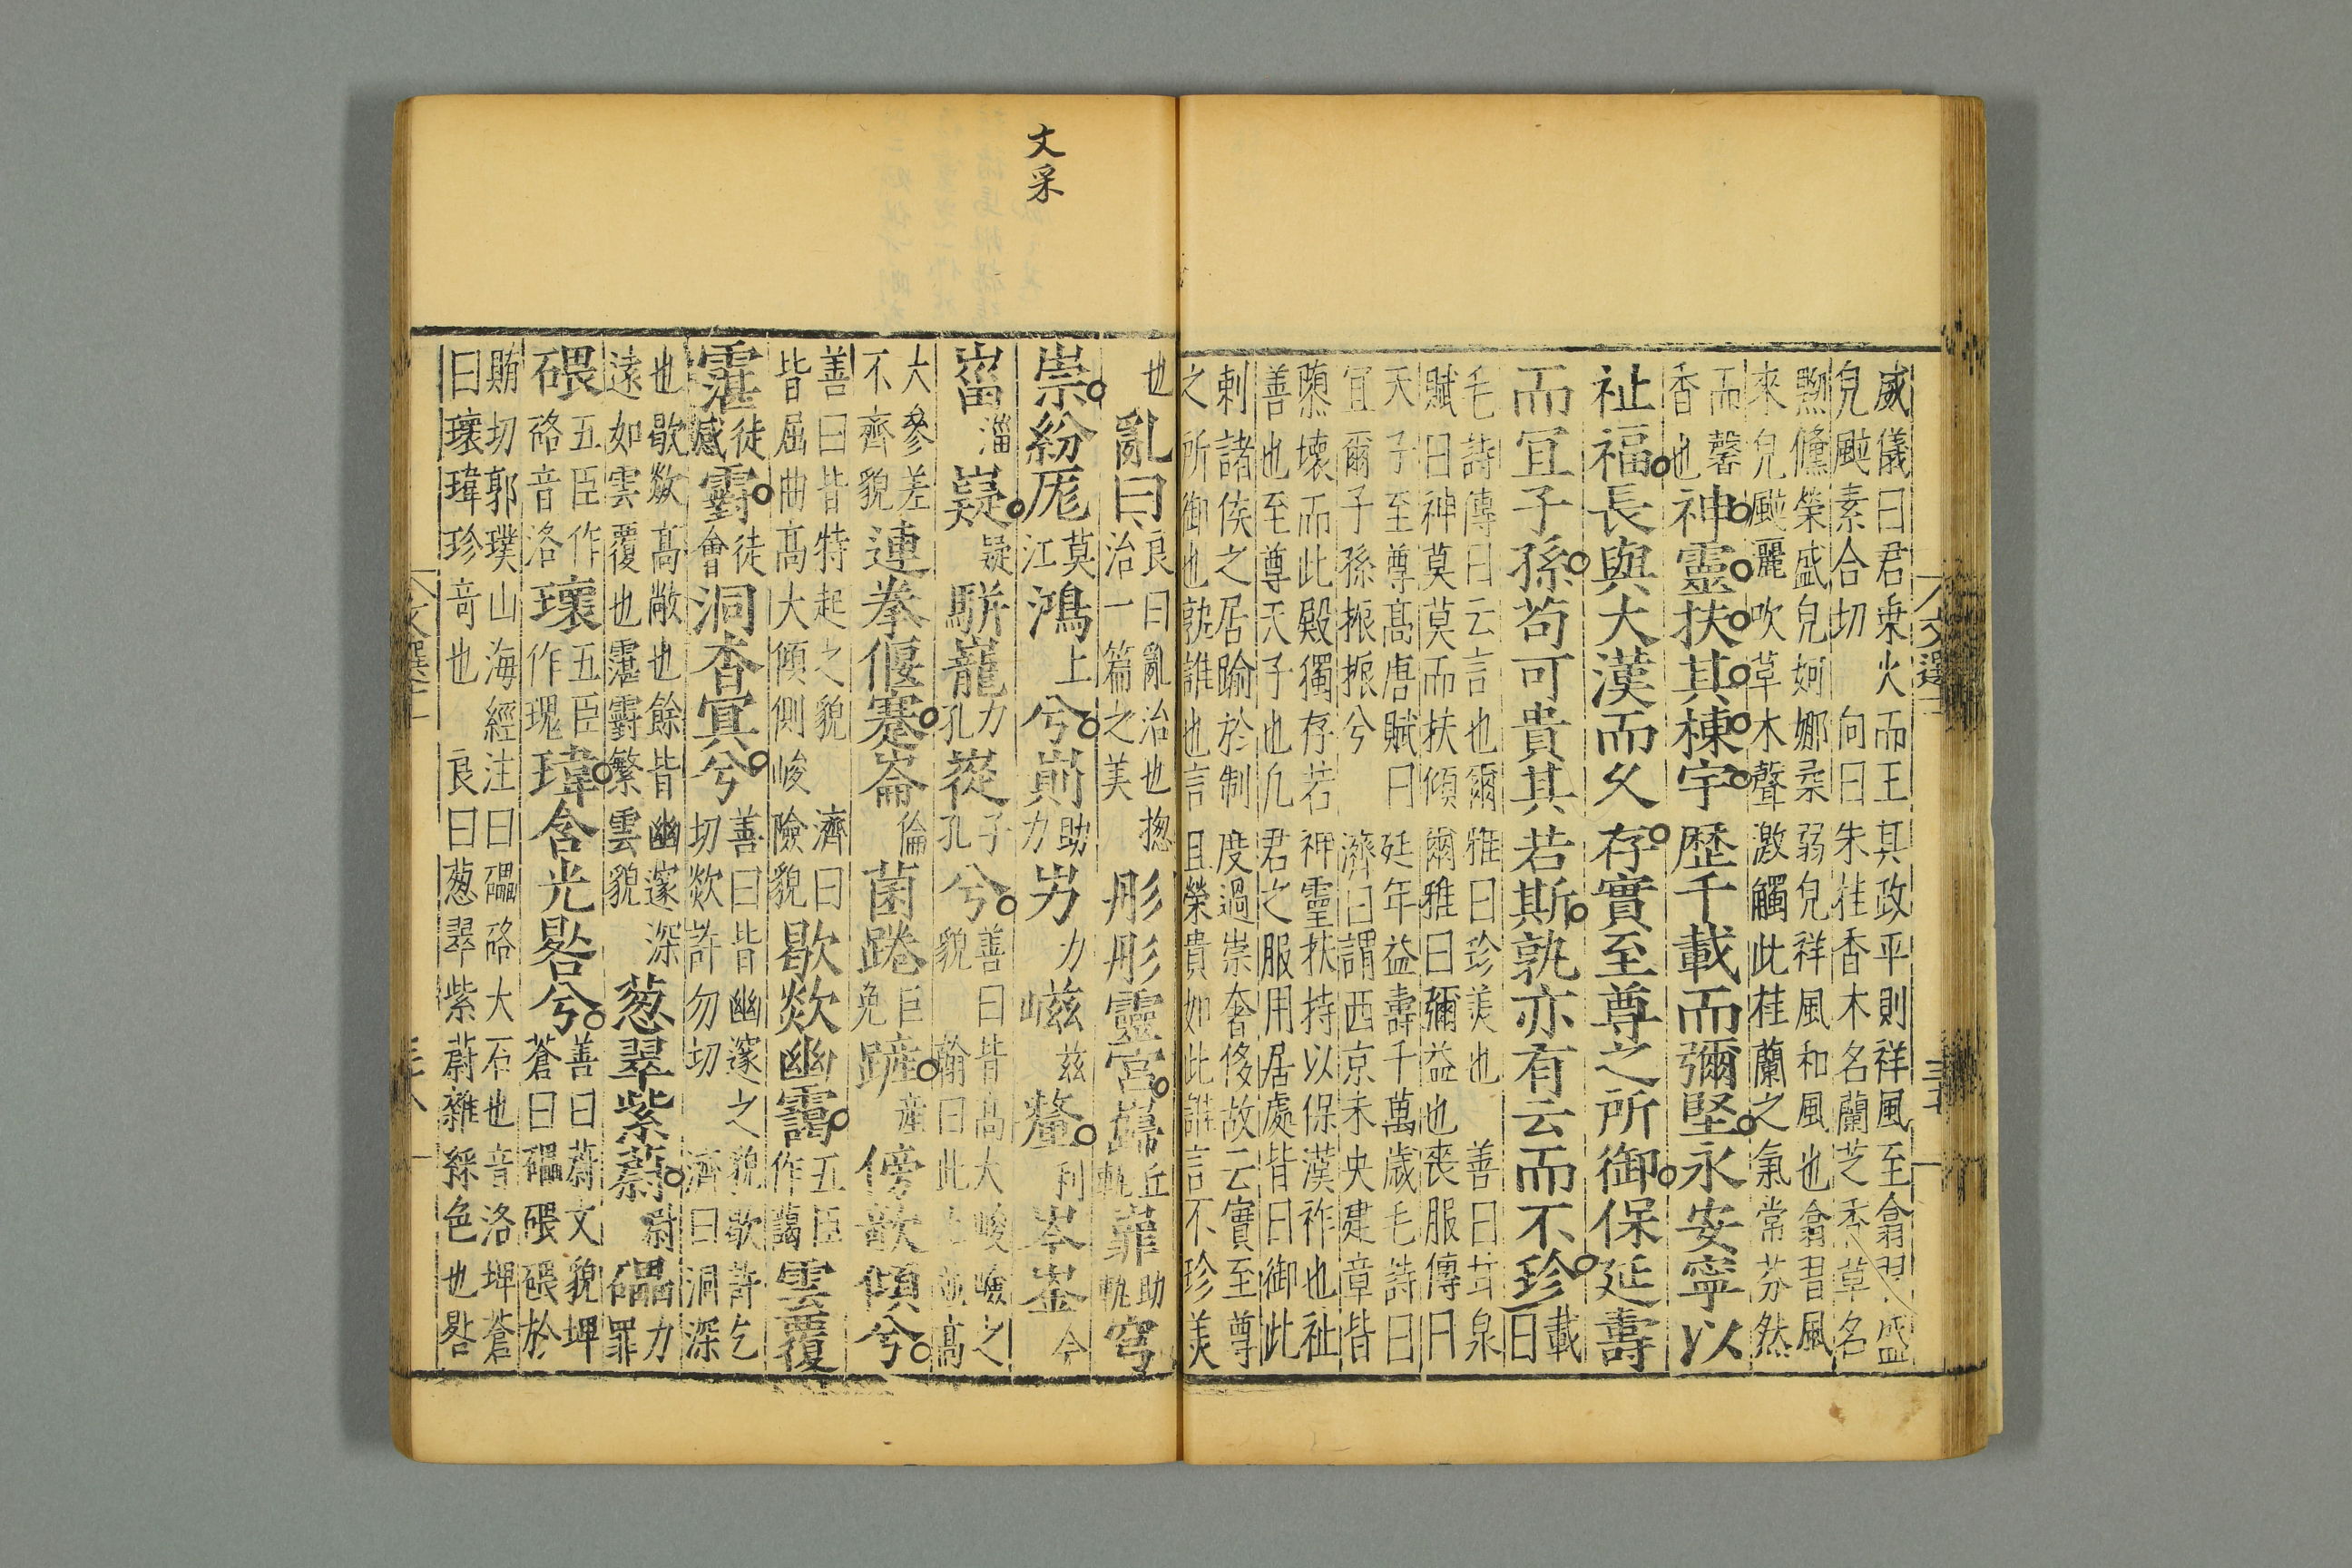 威儀曰君乗火而王其政平則祥風至翕習盛
皃颰素合切 向曰朱桂香木名蘭芝秀草名
黝儵榮盛皃婀娜柔弱皃祥風和風也翕習風
來皃颰灑吹草木聲激觸此桂蘭之氣常芬然
而馨
香也
神靈扶其棟宇歴千載而彌堅永安寧以
祉福長與大漢而久存實至尊之所御保延壽
而冝子孫苟可貴其若斯孰亦有云而不珍
載
曰
毛詩傳曰云言也爾雅曰珍美也 善曰甘泉
賦曰神莫莫而扶傾爾雅曰彌益也喪服傳曰
天子至尊髙唐賦曰延年益壽千萬歲毛詩曰
冝爾子孫振振兮 濟曰謂西京未央建章皆
隳壊而此殿獨存若神靈扶持以保漢祚也祉
善也至尊天子也凡君之服用居處皆曰御此
刺諸侯之居踰於制度過崇奢侈故云實至尊
之所御也孰誰也言且榮貴如此誰言不珍美
也
亂曰
良曰亂治也揔
治一篇之美
彤彤靈宮巋
丘
軌
嶵
助
軌
穹
崇紛厖
莫
江
鴻
上
兮崱
助
力
屴
力
嵫
兹
釐
利
岑崟
今
崰
淄
嶷
疑
駢巃
力
孔
嵸
子
孔
兮
善曰皆髙大峻嶮之
貌 翰曰此
髙
大參差
不齊貌
連拳偃蹇崙
倫
菌踡
巨
免
嵼
産
傍欹傾兮
善曰皆特起之貌 濟曰
皆屈曲髙大傾側峻險貌
歇欻幽靄
五臣
作藹
雲覆
霮
徒
感
䨴
徒
會
洞杳冥兮
善曰皆幽邃之貌歇許乞
切欻許勿切 濟曰洞深
也歇欻髙敞也餘皆幽邃深
遠如雲覆也霮䨴繁雲貌
葱翠紫蔚
尉
礧
力
罪
碨
五臣作
硌音洛
瓌
五臣
作瑰
瑋含光晷兮
善曰蔚文貌埤
蒼曰礧碨碨於
賄切郭璞山海經注曰礧硌大石也音洛埤蒼
曰瓌瑋珍竒也 良曰葱翠紫蔚雜綵色也晷
文采
文選十一